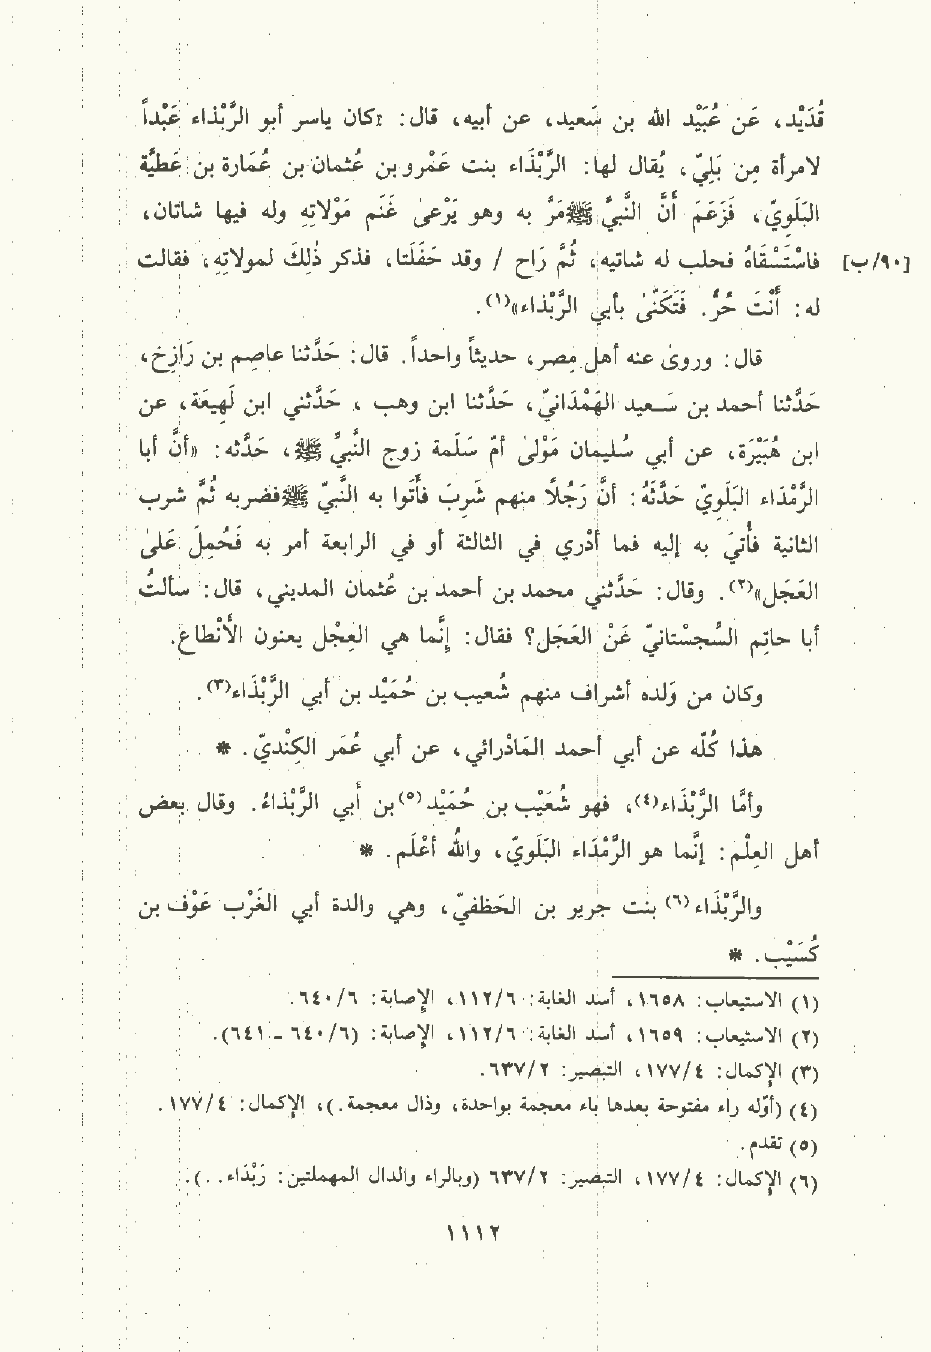 قُدَيْد، عَن عُبَيْد الله بن سَعيد، عن أبيه، قال: «كان ياسر أبو الرَّبْذاء عَبْداً
لامرأة مِن بَلِيّ، يُقال لها: الرَّبْذاء بنت عَمْرو بن عُثمان بن عُمارة بن عَطيَّة
البَلَويّ، فَزَعَمَ أَنَّ النَّبيَّ ﷺ مَرَّ به وهو يَرْعىٰ غَنَم مَوْلاتِهِ وله فيها شاتان،
فاسْتَسْقَاهُ فحلب له شاتيه، ثُمَّ رَاح / وقد حَفَلتا، فذكر ذٰلِكَ لمولاتِهِ، فقالت [٩٠/ب]
له: أَنْتَ حُرٌّ. فَتَكَنّىٰ بأبي الرَّبْذاء»(١).
قال: وروىٰ عنه أهل مِصر، حديثاً واحداً. قال: حَدَّثنا عاصِم بن رَازِخ،
حَدَّثنا أحمد بن سَعيد الهَمْدَانيّ، حَدَّثنا ابن وهب، حَدَّثني ابن لَهِيعَة، عن
ابن هُبَيْرَة، عن أبي سُليمان مَوْلىٰ أمّ سَلَمة زوج النَّبيِّ ﷺ، حَدَّثه: «أَنَّ أبا
الرَّمْدَاء البَلَويّ حَدَّثَهُ: أنَّ رَجُلاً منهم شَرِبَ فأَتَوا به النَّبيّ ﷺ فضربه ثُمَّ شرب
الثانية فأُتيَ به إليه فما أدْري في الثالثة أو في الرابعة أمر به فَحُمِلَ عَلىٰ
العَجَل»(٢). وقال: حَدَّثني محمد بن أحمد بن عُثمان المديني، قال: سألتُ
أبا حاتِم السُّجسْتانيّ عَنْ العَجَل؟ فقال: إنَّما هي العِجْل يعنون الأَنْطاع.
وكان من وَلده أشراف منهم شُعيب بن حُمَيْد بن أبي الرَّبْذاء(٣).
هذا كُلّه عن أبي أحمد المَاذْرائي، عن أبي عُمَر الكِنْديّ. *
وأمَّا الرَّبْذَاء(٤)، فهو شُعَيْب بن حُمَيْد(٥) بن أبي الرَّبْذاءُ. وقال بعض
أهل العِلْم: إنَّما هو الرَّمْدَاء البَلَويّ، واللهُ أَعْلَم. *
والرَّبْذَاء(٦) بنت جرير بن الحَظفيّ، وهي والدة أبي الغَرْب عَوْف بن
كُسَيْب. *
(١) الاستيعاب: ١٦٥٨، أسد الغابة: ١١٢/٦، الإصابة: ٦٤٠/٦.
(٢) الاستيعاب: ١٦٥٩، أسد الغابة: ١١٢/٦، الإصابة: (٦٤٠/٦ ـ ٦٤١).
(٣) الإكمال: ١٧٧/٤، التبصير: ٦٣٧/٢.
(٤) (أوّله راء مفتوحة بعدها باء معجمة بواحدة، وذال معجمة.)، الإكمال: ١٧٧/٤.
(٥) تقدم.
(٦) الإكمال: ١٧٧/٤، التبصير: ٦٣٧/٢ (وبالراء والدال المهملتين: رَبْدَاء...).
١١١٢